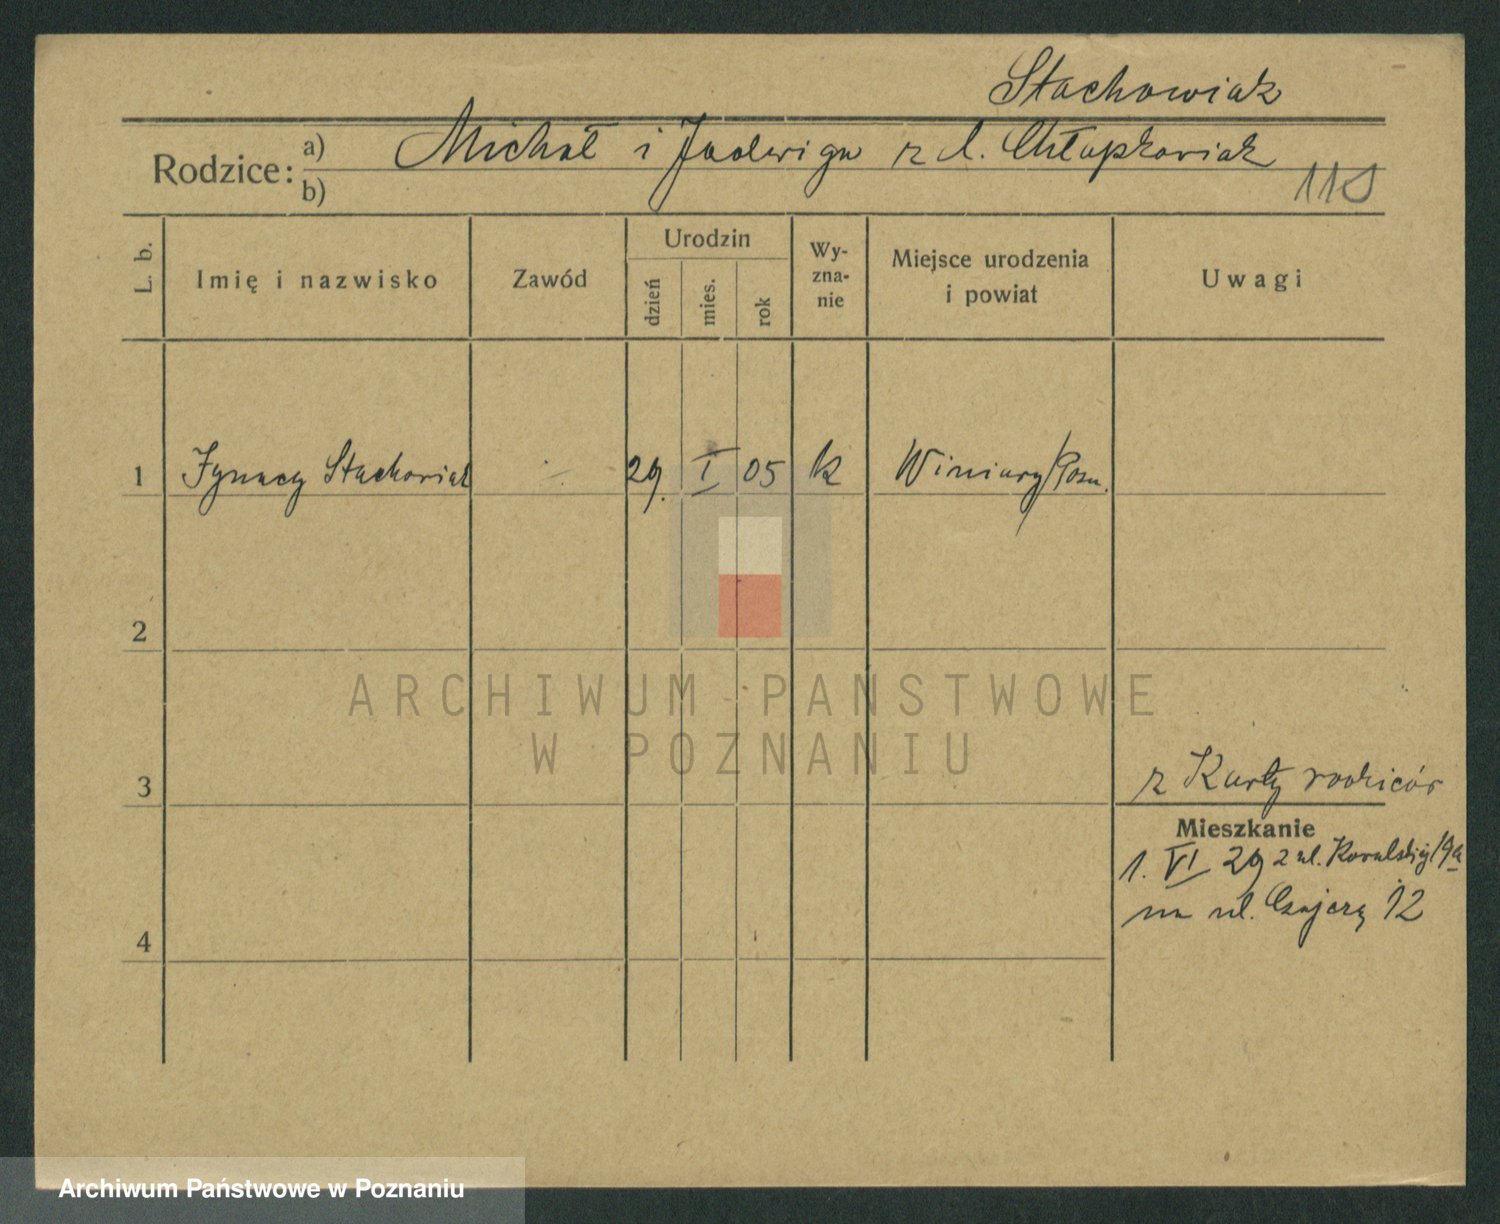 Stachowiak
Rodzice: a) Michał i Jadwiga z d. Chłapkowiak
b)
11S
L. b. Imię i nazwisko Zawód Urodzin dzień mies. rok Wy-zna-nie Miejsce urodzenia i powiat Uwagi
1 Ignacy Stachowiak - 29. I 05 k Winiary/Pozn.
2
ARCHIWUM PAŃSTWOWE
W POZNANIU
3
z Karty rodziców
Mieszkanie
1. VI 29 z ul.
na ul. Czajczą 12
4
Archiwum Państwowe w Poznaniu